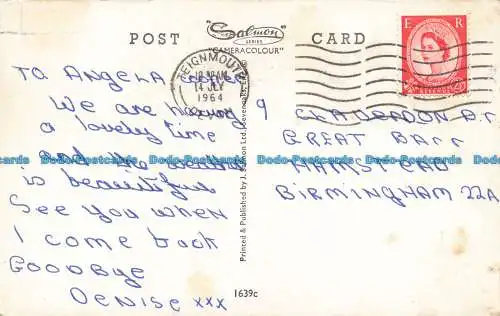 POST "Salmon SERIES "CAMERACOLOUR" CARD
E R
TEIGNMOUTH
10 30 AM
14 JLY
1964
TO ANGELA
We are having
a lovely time
and the weather
is beautiful
See you when
I come back
GOODBYE
DENISE xxx
9
GREAT BARR
HAMSTEAD
BIRMINGHAM 22A
Printed & Published by J. Salmon Ltd., Sevenoaks,
1639c
Dodo-Postcards Dodo-Postcards Dodo-Postcards Dodo-Postcards